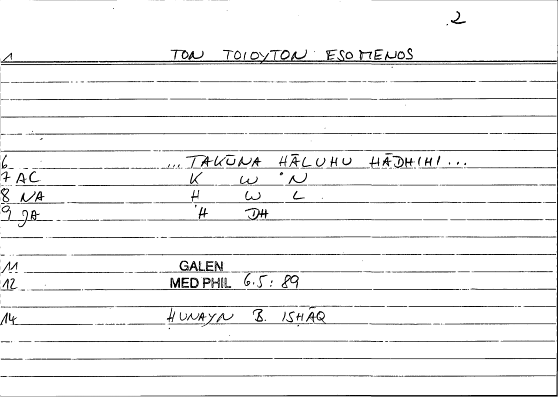 2
1 TON TOIOYTON ESOMENOS
6 ... TAKŪNA HĀLUHU HĀDHIHI ...
7 AC K W N
8 NA H W L
9 JA H DH
11 GALEN
12 MED PHIL 6.5 : 89
14 HUNAYN B. ISHĀQ